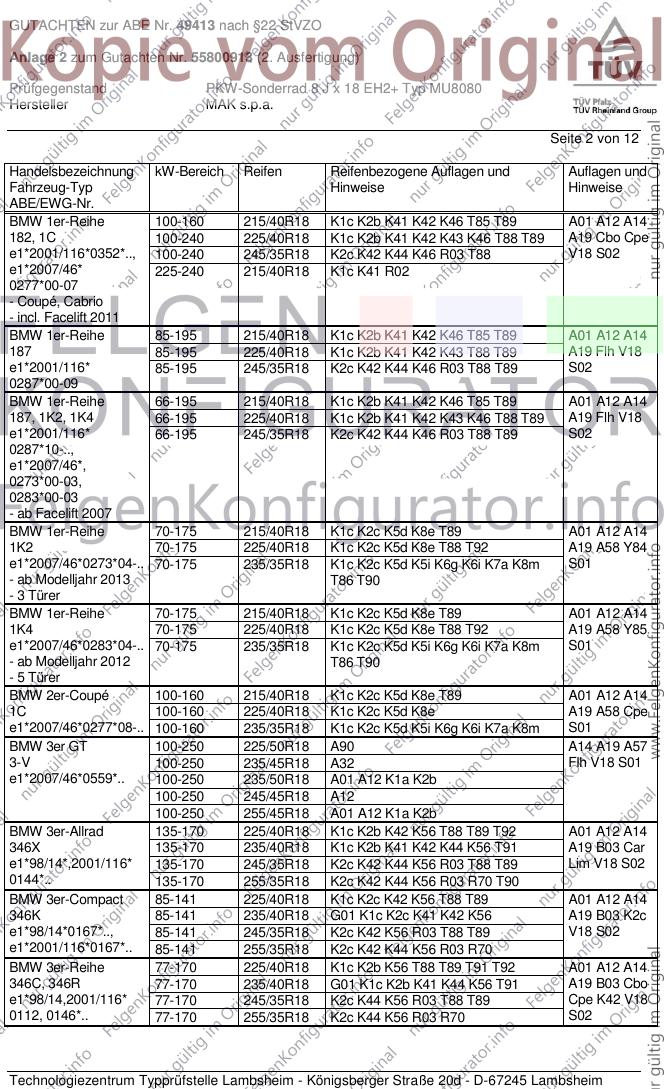 GUTACHTEN zur ABE Nr. 49413 nach §22 StVZO
Anlage 2 zum Gutachten Nr. 55800913 (2. Ausfertigung)
Kopie vom Original
Prüfgegenstand PKW-Sonderrad 8 J x 18 EH2+ Typ MU8080
Hersteller MAK s.p.a.
TÜV
TÜV Pfalz
TÜV Rheinland Group
Seite 2 von 12
Handelsbezeichnung kW-Bereich Reifen Reifenbezogene Auflagen und Auflagen und
Fahrzeug-Typ Hinweise Hinweise
ABE/EWG-Nr.
BMW 1er-Reihe 100-160 215/40R18 K1c K2b K41 K42 K46 T85 T89 A01 A12 A14
182, 1C 100-240 225/40R18 K1c K2b K41 K42 K43 K46 T88 T89 A19 Cbo Cpe
e1*2001/116*0352*.., 100-240 245/35R18 K2c K42 K44 K46 R03 T88 V18 S02
e1*2007/46* 225-240 215/40R18 K1c K41 R02
0277*00-07
- Coupé, Cabrio
- incl. Facelift 2011
BMW 1er-Reihe 85-195 215/40R18 K1c K2b K41 K42 K46 T85 T89 A01 A12 A14
187 85-195 225/40R18 K1c K2b K41 K42 K43 T88 T89 A19 Flh V18
e1*2001/116* 85-195 245/35R18 K2c K42 K44 K46 R03 T88 T89 S02
0287*00-09
BMW 1er-Reihe 66-195 215/40R18 K1c K2b K41 K42 K46 T85 T89 A01 A12 A14
187, 1K2, 1K4 66-195 225/40R18 K1c K2b K41 K42 K43 K46 T88 T89 A19 Flh V18
e1*2001/116* 66-195 245/35R18 K2c K42 K44 K46 R03 T88 T89 S02
0287*10-..,
e1*2007/46*,
0273*00-03,
0283*00-03
- ab Facelift 2007
BMW 1er-Reihe 70-175 215/40R18 K1c K2c K5d K8e T89 A01 A12 A14
1K2 70-175 225/40R18 K1c K2c K5d K8e T88 T92 A19 A58 Y84
e1*2007/46*0273*04-.. 70-175 235/35R18 K1c K2c K5d K5i K6g K6i K7a K8m S01
- ab Modelljahr 2013 T86 T90
- 3 Türer
BMW 1er-Reihe 70-175 215/40R18 K1c K2c K5d K8e T89 A01 A12 A14
1K4 70-175 225/40R18 K1c K2c K5d K8e T88 T92 A19 A58 Y85
e1*2007/46*0283*04-.. 70-175 235/35R18 K1c K2c K5d K5i K6g K6i K7a K8m S01
- ab Modelljahr 2012 T86 T90
- 5 Türer
BMW 2er-Coupé 100-160 215/40R18 K1c K2c K5d K8e T89 A01 A12 A14
1C 100-160 225/40R18 K1c K2c K5d K8e A19 A58 Cpe
e1*2007/46*0277*08-.. 100-160 235/35R18 K1c K2c K5d K5i K6g K6i K7a K8m S01
BMW 3er GT 100-250 225/50R18 A90 A14 A19 A57
3-V 100-250 235/45R18 A32 Flh V18 S01
e1*2007/46*0559*.. 100-250 235/50R18 A01 A12 K1a K2b
100-250 245/45R18 A12
100-250 255/45R18 A01 A12 K1a K2b
BMW 3er-Allrad 135-170 225/40R18 K1c K2b K42 K56 T88 T89 T92 A01 A12 A14
346X 135-170 235/40R18 K1c K2b K41 K42 K44 K56 T91 A19 B03 Car
e1*98/14*,2001/116* 135-170 245/35R18 K2c K42 K44 K56 R03 T88 T89 Lim V18 S02
0144*.. 135-170 255/35R18 K2c K42 K44 K56 R03 R70 T90
BMW 3er-Compact 85-141 225/40R18 K1c K2c K42 K56 T88 T89 A01 A12 A14
346K 85-141 235/40R18 G01 K1c K2c K41 K42 K56 A19 B03 K2c
e1*98/14*0167*.., 85-141 245/35R18 K2c K42 K56 R03 T88 T89 V18 S02
e1*2001/116*0167*.. 85-141 255/35R18 K2c K42 K44 K56 R03 R70
BMW 3er-Reihe 77-170 225/40R18 K1c K2b K56 T88 T89 T91 T92 A01 A12 A14
346C, 346R 77-170 235/40R18 G01 K1c K2b K41 K44 K56 T91 A19 B03 Cbo
e1*98/14,2001/116* 77-170 245/35R18 K2c K44 K56 R03 T88 T89 Cpe K42 V18
0112, 0146*.. 77-170 255/35R18 K2c K44 K56 R03 R70 S02
FELGEN
KONFIGURATOR
FelgenKonfigurator.info
www.FelgenKonfigurator.info
nur gültig im Original
Technologiezentrum Typprüfstelle Lambsheim - Königsberger Straße 20d - D-67245 Lambsheim